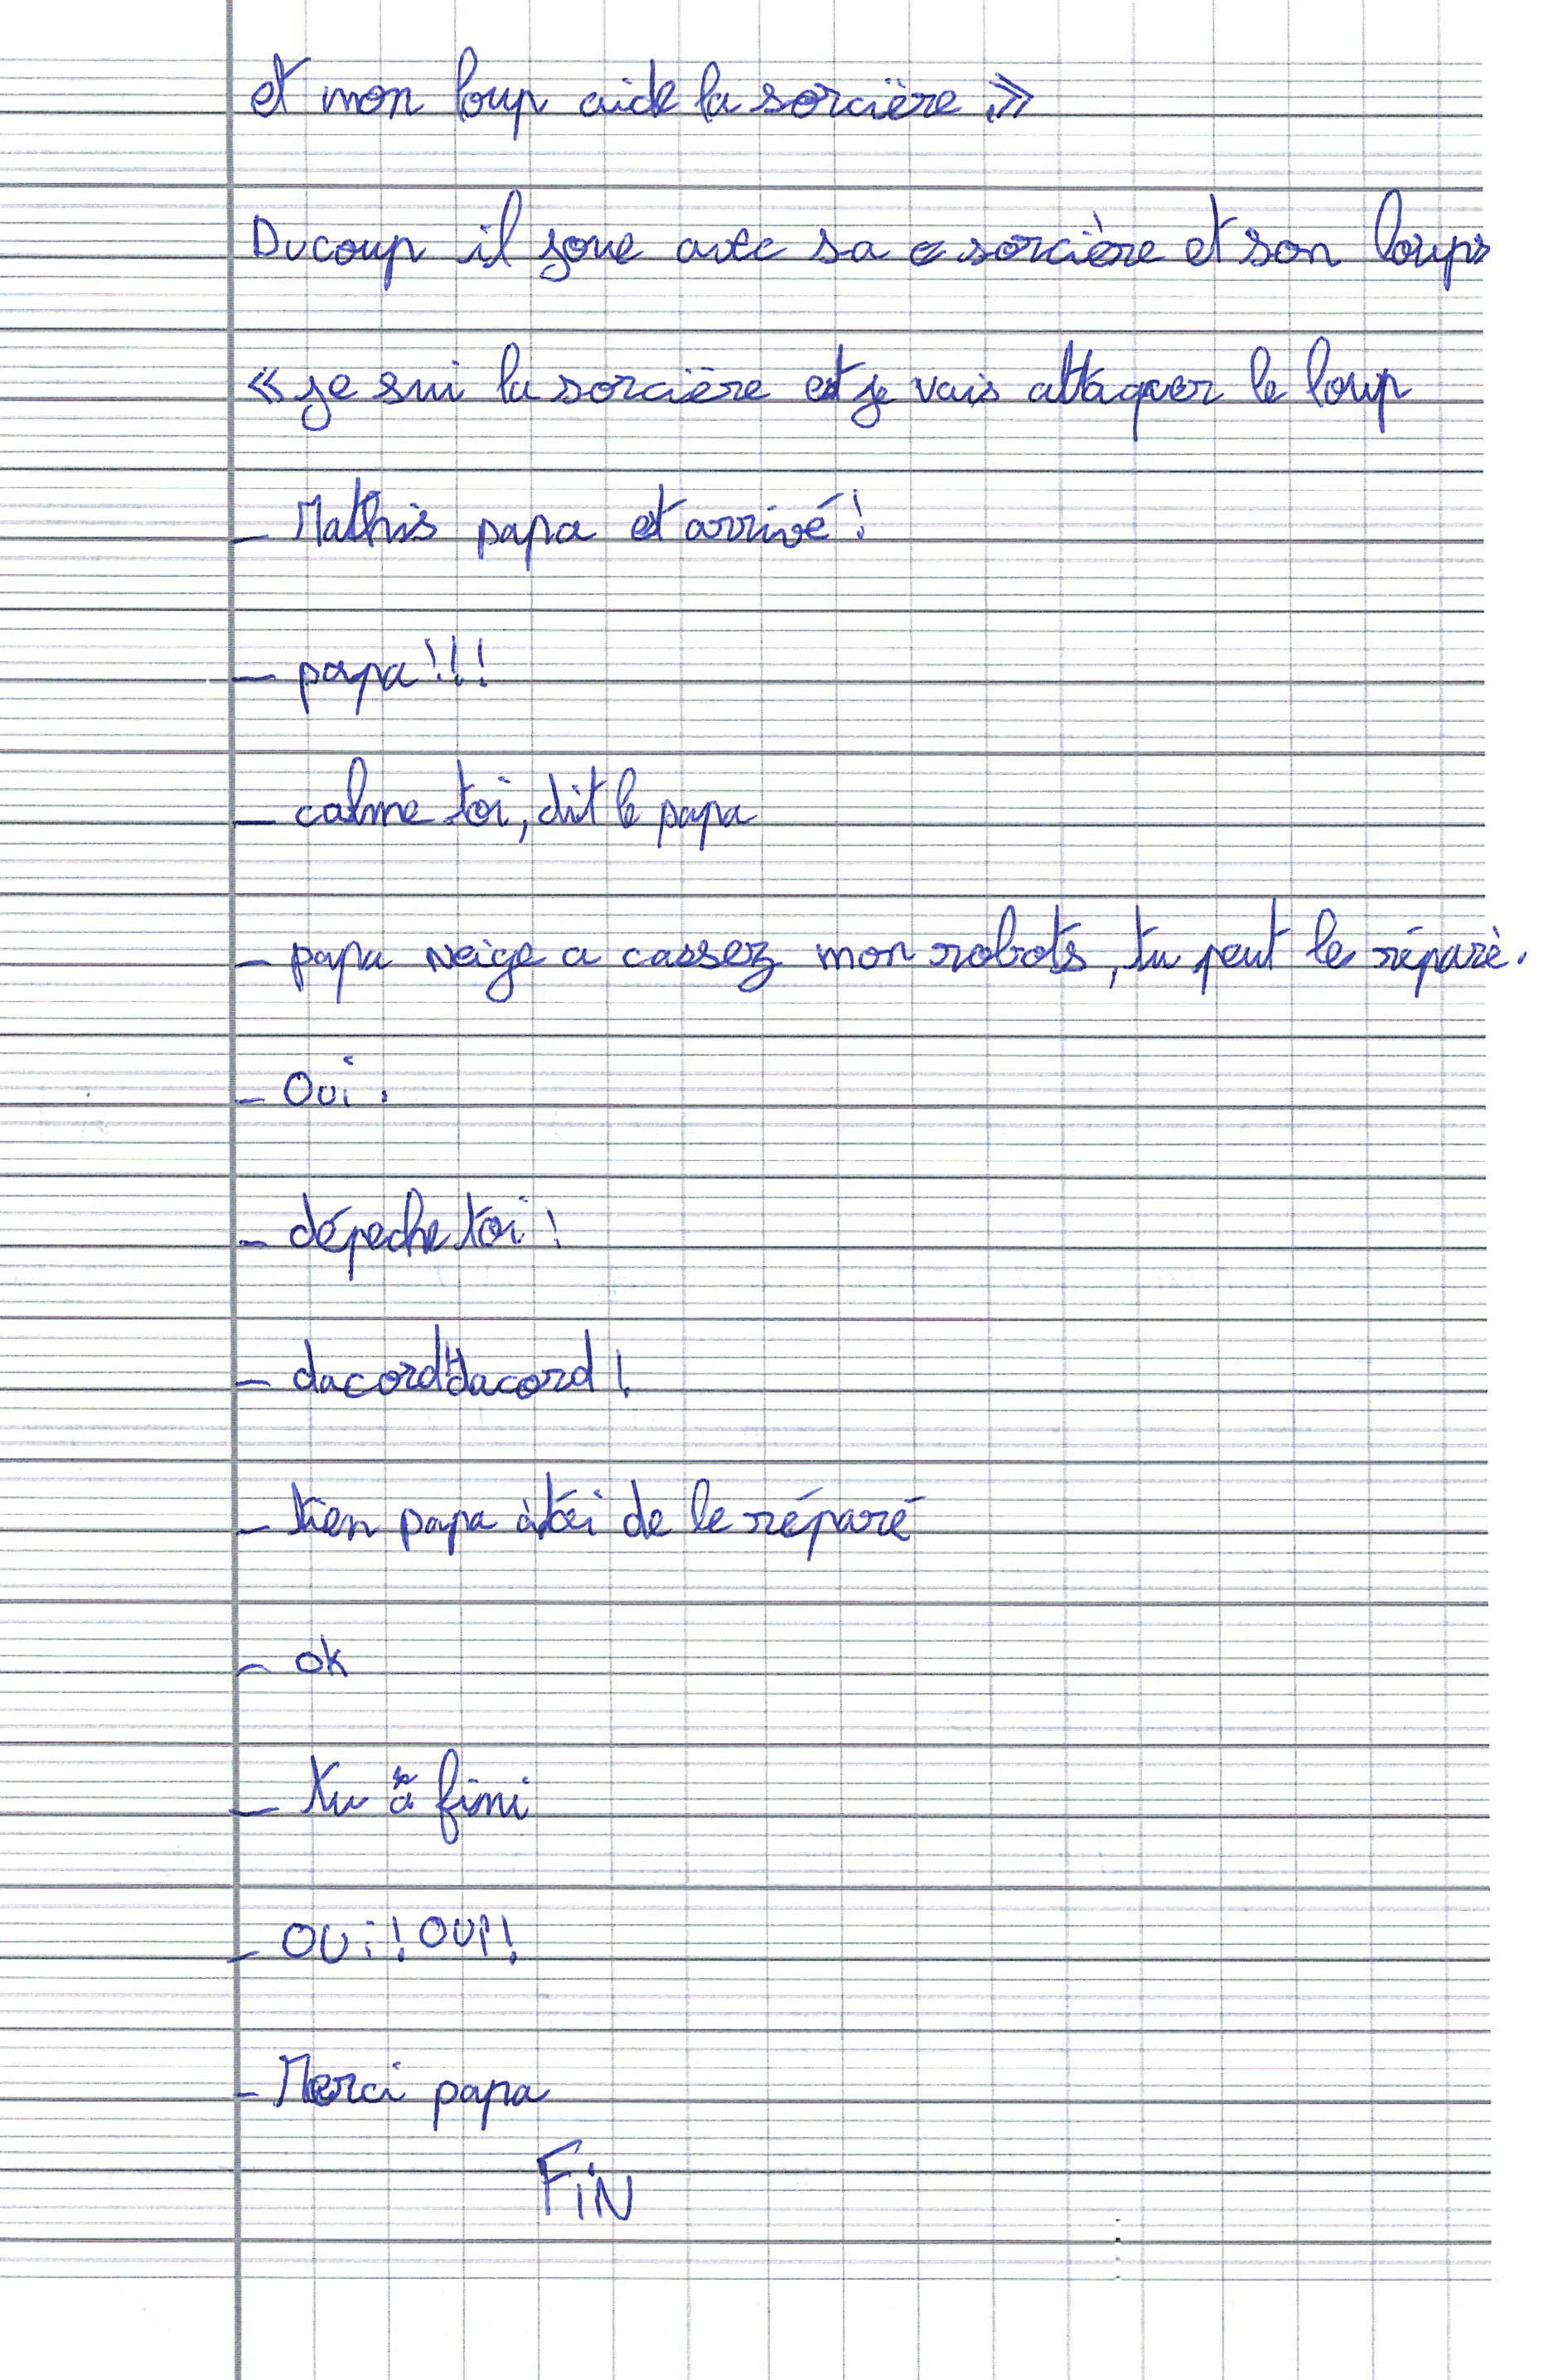 et mon loup aide la sorcière »
Ducoup il joue avec sa sorcière et son loups
« je sui la sorcière et je vais attaquer le loup
– Mathis papa et arrivé !
– papa !!!
– calme toi, dit le papa
– papa Neige a cassez mon robots, tu peut le réparè.
– Oui.
– dépeche toi !
– dacord ! dacord !
– tien papa à toi de le réparé
– ok
– tu à fini
– OUi ! OUi !
– Merci papa
FiN